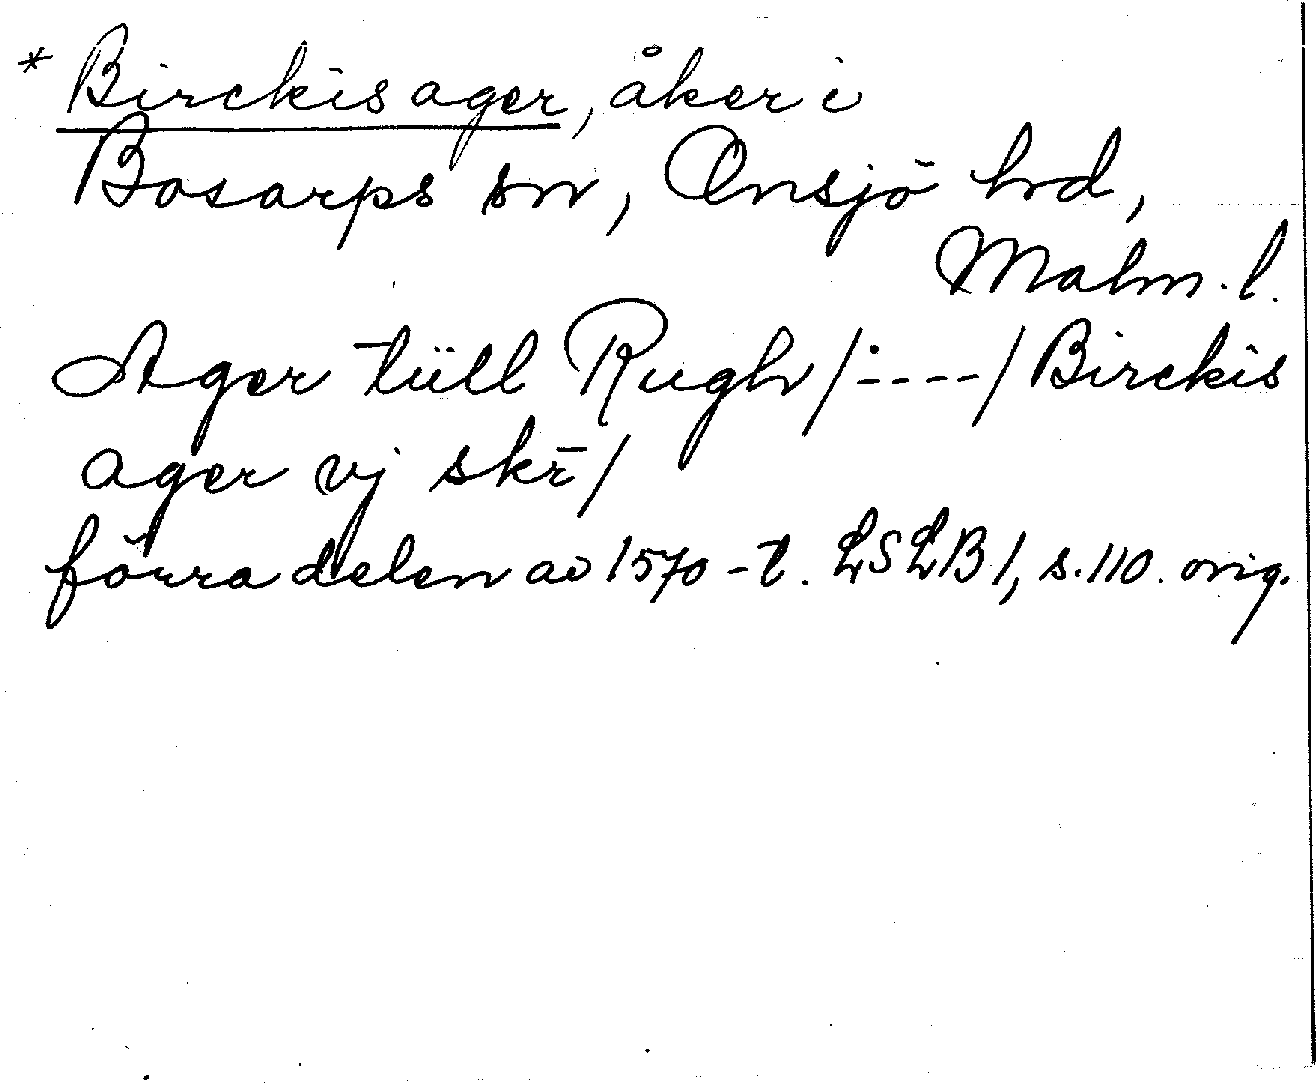 * Birckis ager, åker i
Bosarps sn, Onsjö hd,
Malm. l.
Ager tüll Rugh /:----/ Birckis
ager vj skr̄ /
förra delen av 1570-t. LSLB 1, s. 110. orig.